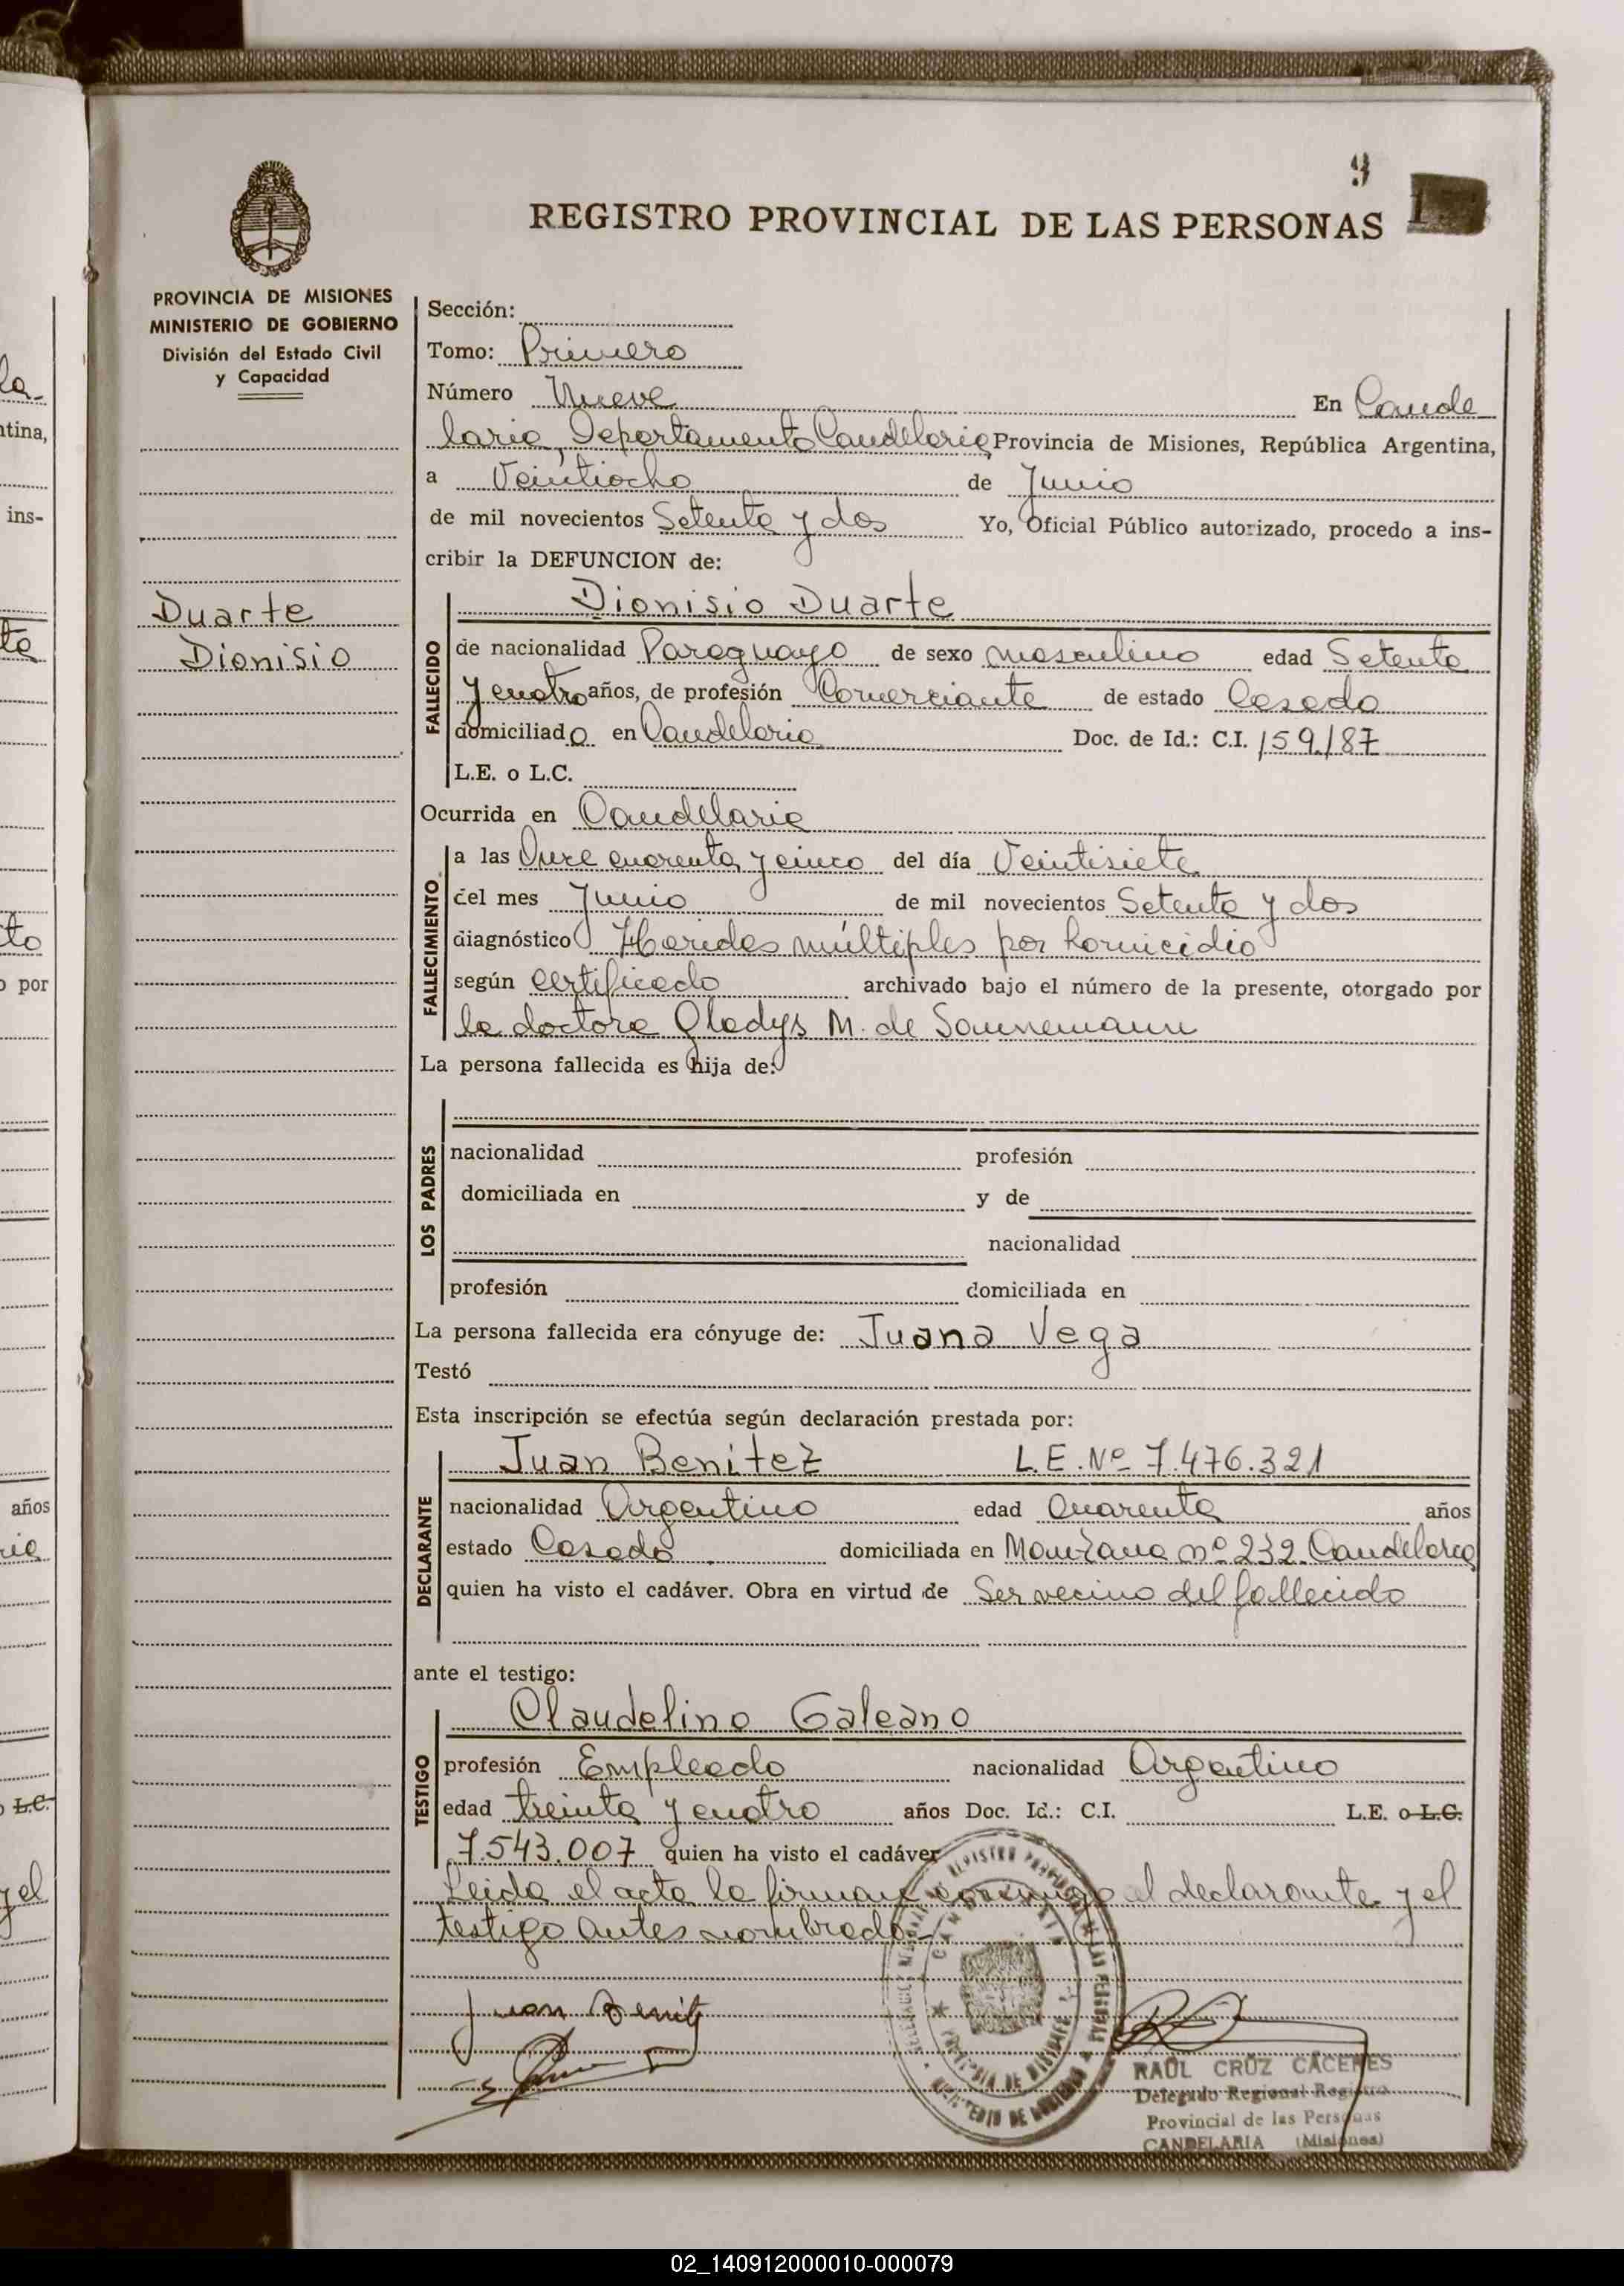 9
REGISTRO PROVINCIAL DE LAS PERSONAS
PROVINCIA DE MISIONES
MINISTERIO DE GOBIERNO
División del Estado Civil
y Capacidad
Duarte
Dionisio
Sección:
Tomo: Primero
Número Nueve En Cande
laria, Departamento Candelaria Provincia de Misiones, República Argentina,
a Veintiocho de Junio
de mil novecientos Setenta y dos Yo, Oficial Público autorizado, procedo a ins-
cribir la DEFUNCION de:
Dionisio Duarte
FALLECIDO
de nacionalidad Paraguayo de sexo masculino edad Setenta
y cuatro años, de profesión Comerciante de estado Casado
domiciliado en Candelaria Doc. de Id.: C.I. 159.187
L.E. o L.C.
Ocurrida en Candelaria
FALLECIMIENTO
a las Once cuarenta y cinco del día Veintisiete
del mes Junio de mil novecientos Setenta y dos
diagnóstico Heridas múltiples por homicidio
según certificado archivado bajo el número de la presente, otorgado por
la doctora Gladys M. de Sannemann
La persona fallecida es hija de:
LOS PADRES
nacionalidad profesión
domiciliada en y de
nacionalidad
profesión domiciliada en
La persona fallecida era cónyuge de: Juana Vega
Testó
Esta inscripción se efectúa según declaración prestada por:
Juan Benitez L.E. Nº 7.476.321
DECLARANTE
nacionalidad Argentino edad Cuarenta años
estado Casado domiciliada en Manzana nº 232. Candelaria
quien ha visto el cadáver. Obra en virtud de Ser vecino del fallecido
ante el testigo:
Claudelino Galeano
TESTIGO
profesión Empleado nacionalidad Argentino
edad treinta y cuatro años Doc. Id.: C.I. L.E. o L.C.
7.543.007 quien ha visto el cadáver
Leida el acta la firman conmigo el declarante y el
testigo antes nombrado.-
Juan Benitz
RAUL CRUZ CACERES
Delegado Regional Registro
Provincial de las Personas
CANDELARIA (Misiones)
la-
ntina,
ins-
to
o por
años
L.C.
y el
02_140912000010-000079